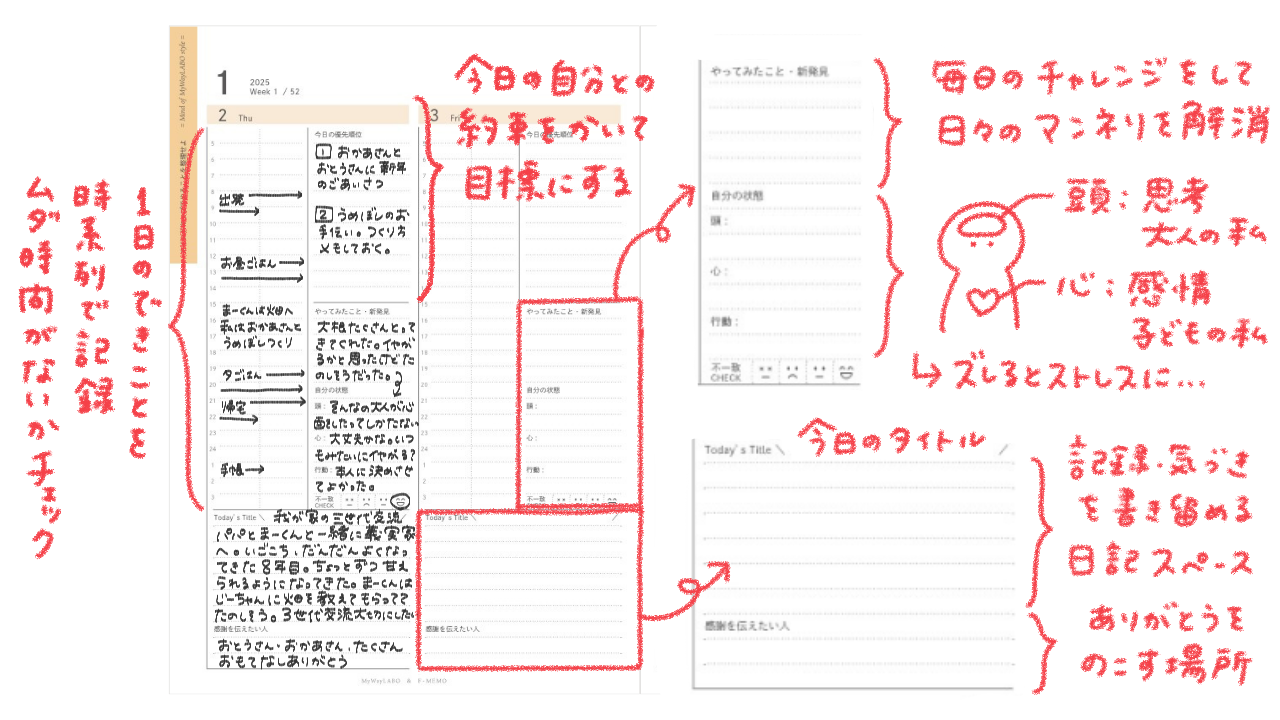 1日のできことを
時系列で記録
ムダ時間がないかチェック
= Mind of MyWayLABO style =
1
2025
Week 1 / 52
2 Thu
3 Fri
今日の自分との
約束をかいて
目標にする
今日の優先順位
1 おかあさんと
おとうさんに新年
のごあいさつ
2 うめぼしのお
手伝い。つくり方
メモしておく。
5
6
7
8
9
10
11
12
13
14
15
16
17
18
19
20
21
22
23
24
1
2
3
出発
お昼ごはん
まーくんは火田へ
私はおかあさんと
うめぼしつくり
夕ごはん
帰宅
手帳
やってみたこと・新発見
大根たくさんとって
きてくれた。イヤが
るかと思ったけどた
のしそうだった。
自分の状態
頭：そんなの大人が心
配したってしかたない
心：大丈夫かな。いつ
もみたいにイヤがる？
行動：本人に決めさせ
てよかった。
不一致
CHECK
Today's Title \ 我が家の三世代交流 /
パパとまーくんと一緒に義実家
へ。いごこち、だんだんよくなっ
てきた8年目。ちょっとずつ甘え
られるようになってきた。まーくんは
じーちゃんに火田を教えてもらってて
たのしそう。3世代交流大切にしたい
感謝を伝えたい人
おとうさん・おかあさん、たくさん
おもてなしありがとう
今日の優先順位
やってみたこと・新発見
自分の状態
頭：
心：
行動：
不一致
CHECK
Today's Title \ /
感謝を伝えたい人
MyWayLABO & F-MEMO
やってみたこと・新発見
自分の状態
頭：
心：
行動：
不一致
CHECK
毎日のチャレンジをして
日々のマンネリを解消
頭：思考
大人の私
心：感情
子どもの私
ズレるとストレスに...
今日のタイトル
Today's Title \ /
感謝を伝えたい人
記録・気づき
を書き留める
日記スペース
ありがとうを
のこす場所